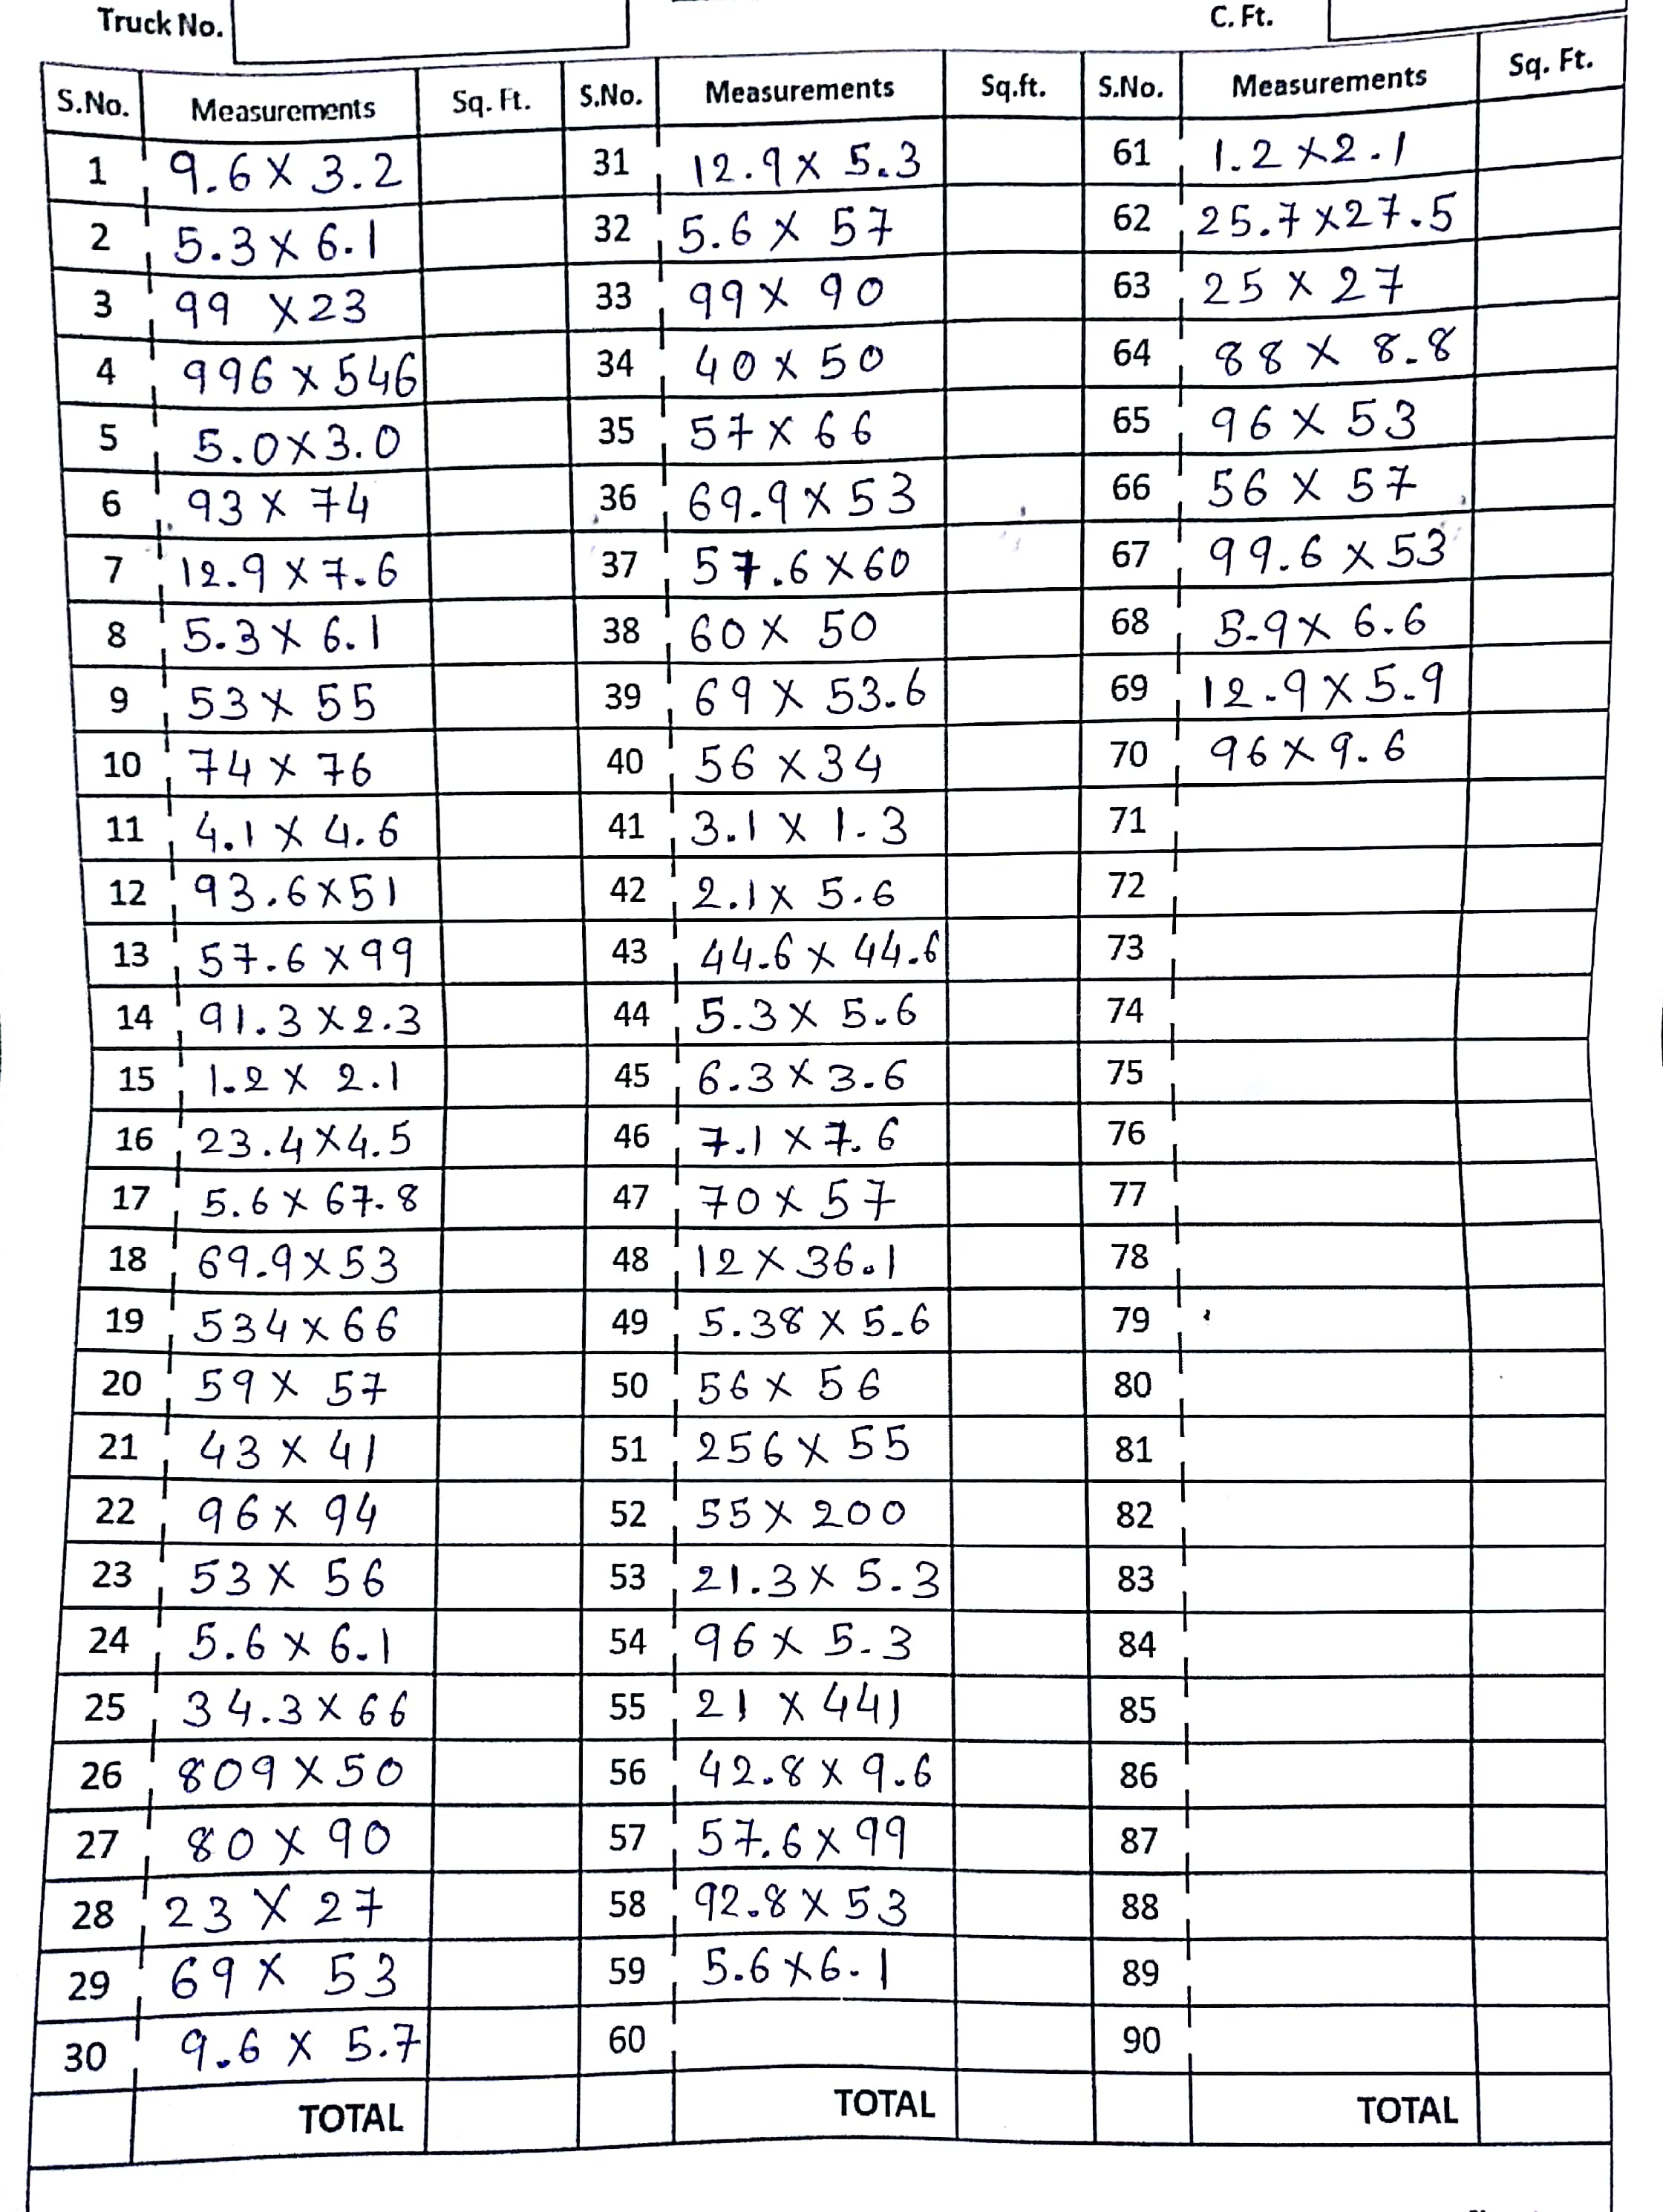 Truck No. C. Ft.
S.No. Measurements Sq. Ft. S.No. Measurements Sq.ft. S.No. Measurements Sq. Ft.
1 9.6 X 3.2 31 12.9 X 5.3 61 1.2 X 2.1
2 5.3 X 6.1 32 5.6 X 57 62 25.7 X 27.5
3 99 X 23 33 99 X 90 63 25 X 27
4 996 X 546 34 40 X 50 64 88 X 8.8
5 5.0 X 3.0 35 57 X 66 65 96 X 53
6 93 X 74 36 69.9 X 53 66 56 X 57
7 12.9 X 7.6 37 57.6 X 60 67 99.6 X 53
8 5.3 X 6.1 38 60 X 50 68 5.9 X 6.6
9 53 X 55 39 69 X 53.6 69 12.9 X 5.9
10 74 X 76 40 56 X 34 70 96 X 9.6
11 4.1 X 4.6 41 3.1 X 1.3 71
12 93.6 X 51 42 2.1 X 5.6 72
13 57.6 X 99 43 44.6 X 44.6 73
14 91.3 X 2.3 44 5.3 X 5.6 74
15 1.2 X 2.1 45 6.3 X 3.6 75
16 23.4 X 4.5 46 7.1 X 7.6 76
17 5.6 X 67.8 47 70 X 57 77
18 69.9 X 53 48 12 X 36.1 78
19 534 X 66 49 5.38 X 5.6 79
20 59 X 57 50 56 X 56 80
21 43 X 41 51 256 X 55 81
22 96 X 94 52 55 X 200 82
23 53 X 56 53 21.3 X 5.3 83
24 5.6 X 6.1 54 96 X 5.3 84
25 34.3 X 66 55 21 X 441 85
26 809 X 50 56 42.8 X 9.6 86
27 80 X 90 57 57.6 X 99 87
28 23 X 27 58 92.8 X 53 88
29 69 X 53 59 5.6 X 6.1 89
30 9.6 X 5.7 60 90
TOTAL TOTAL TOTAL